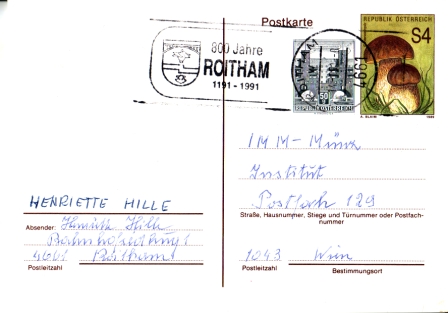 Postkarte
800 Jahre
ROITHAM
1191-1991
4661
REPUBLIK ÖSTERREICH
S4
50
REPUBLIK ÖSTERREICH
IMM-Münz
Institut
Postfach 129
Straße, Hausnummer, Stiege und Türnummer oder Postfach-
nummer
1043 Wien
Postleitzahl
Bestimmungsort
HENRIETTE HILLE
Absender:
Hille
4661 Roitham
Postleitzahl